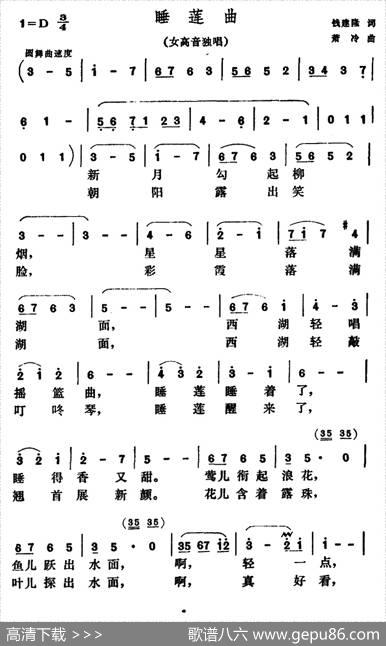 睡莲曲
1=D 3/4
（女高音独唱）
钱建隆 词
萧冷 曲
圆舞曲速度
(3 - 5 | i - 7 | 67 6 3 | 56 5 2 | 3 - - |
6 1 - | 56 71 23 | 4 - 6 | 2 - 1 | 0 1 1 |
0 1 1) | 3 - 5 | i - 7 | 67 6 3 | 56 5 2 |
新 月 勾 起 柳
朝 阳 露 出 笑
3 - - | 3 - - | 4 - 6 | 2 - i | 7i 7 #4 |
烟， 星 星 落 满
脸， 彩 霞 落 满
67 6 3 | 5 - - | 5 - - | 67 6 2 | 4 - 3 |
湖 面， 西 湖 轻 唱
湖 面， 西 湖 轻 敲
2 i 2 | 6 - - | 4 3 2 | 3 - i | 6 - - |
摇 篮 曲， 睡 莲 睡 着 了，
叮 咚 琴， 睡 莲 醒 来 了，
(35 35)
3 2 1 | 2 - 7 | 5 - - | 67 6 5 | 35 · 0 |
睡 得 香 又 甜。 莺儿 衔 起 浪 花，
翘 首 展 新 颜。 花儿 含 着 露 珠，
(35 35)
67 6 5 | 35 · 0 | 35 67 12 | 3 - 2 1 | 7 - - |
鱼儿 跃 出 水 面， 啊， 轻 一 点，
叶儿 探 出 水 面， 啊， 真 好 看，
高清下载 >>>
歌谱八六 www.gepu86.com